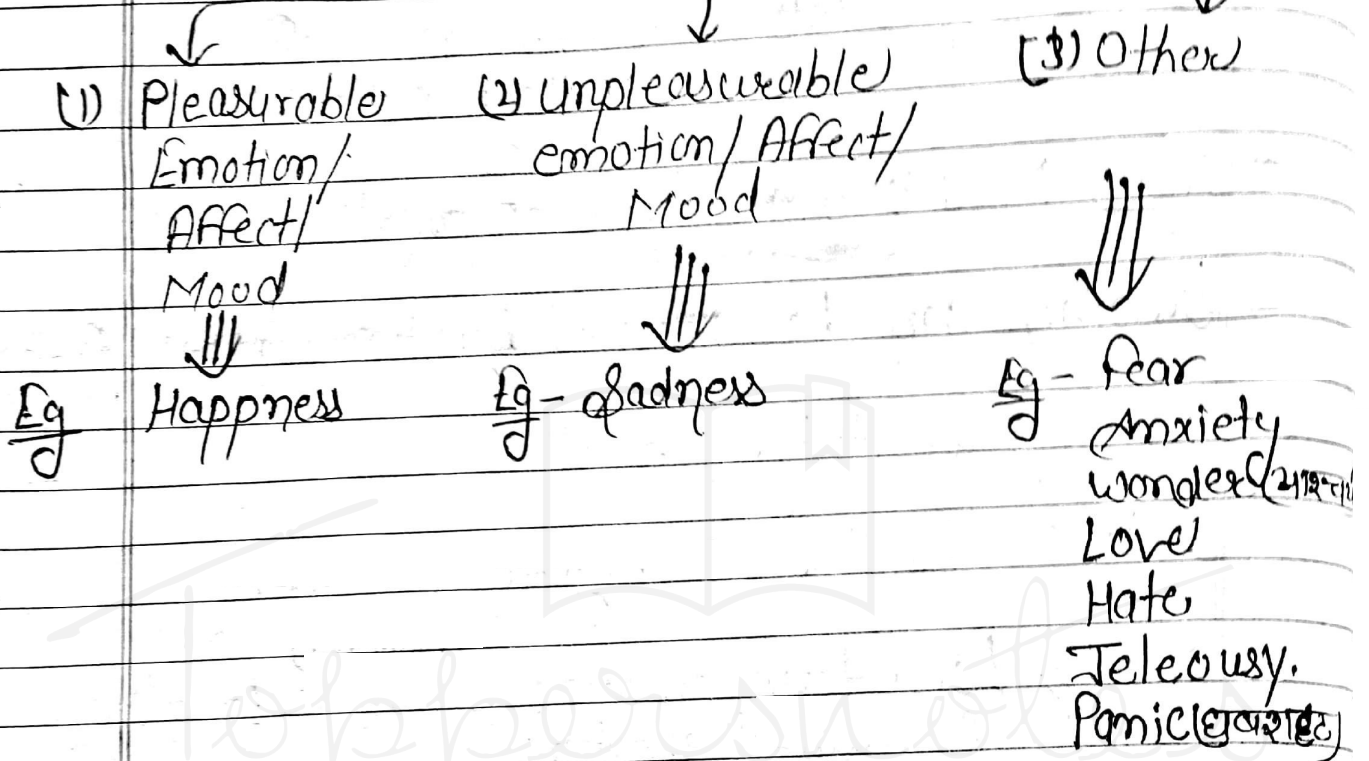 (1) Pleasurable
Emotion/
Affect/
Mood
Eg Happness
(2) unpleasureable
emotion/ Affect/
Mood
Eg - Sadness
(3) Other
Eg - fear
Anxiety
wonder (
Love
Hate
Jeleousy.
Panic (घबराहट)
Toppersnotes